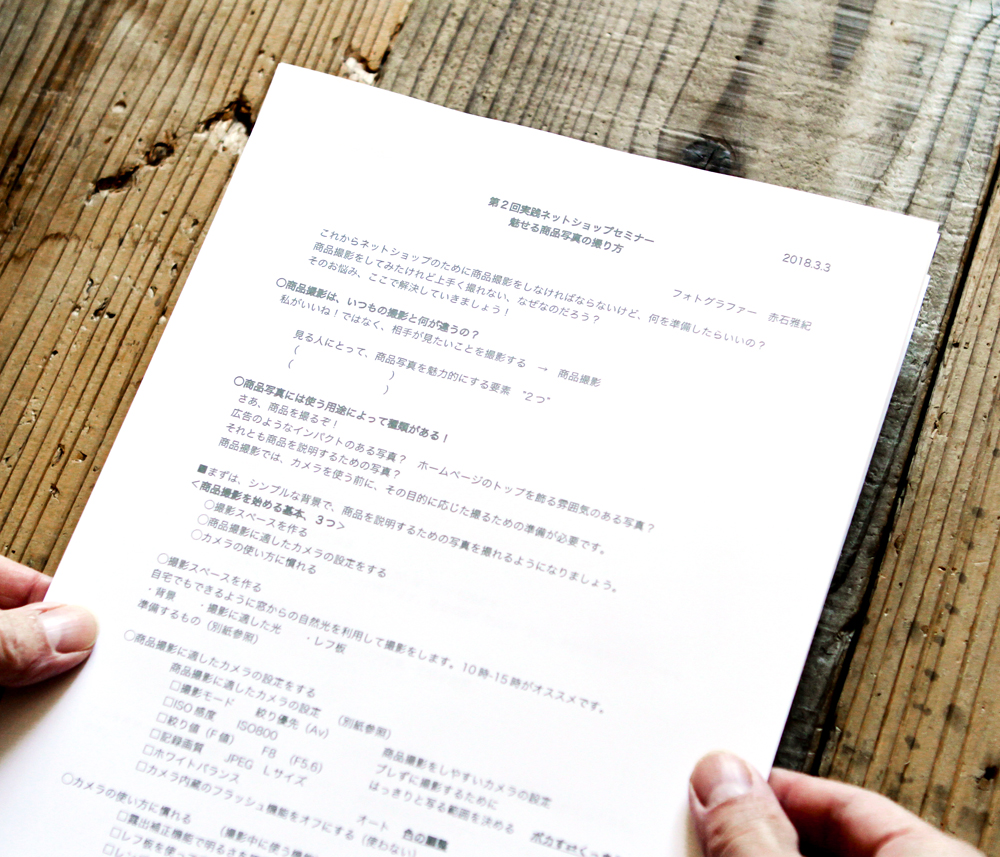 第2回実践ネットショップセミナー
魅せる商品写真の撮り方
2018.3.3
フォトグラファー 赤石雅紀
これからネットショップのために商品撮影をしなければならないけど、何を準備したらいいの？
商品撮影をしてみたけれど上手く撮れない、なぜなのだろう？
そのお悩み、ここで解決していきましょう！
○商品撮影は、いつもの撮影と何が違うの？
私がいいね！ではなく、相手が見たいことを撮影する → 商品撮影
見る人にとって、商品写真を魅力的にする要素 “2つ”
( )
( )
○商品写真には使う用途によって種類がある！
さあ、商品を撮るぞ！
広告のようなインパクトのある写真？ ホームページのトップを飾る雰囲気のある写真？
それとも商品を説明するための写真？
商品撮影では、カメラを使う前に、その目的に応じた撮るための準備が必要です。
■まずは、シンプルな背景で、商品を説明するための写真を撮れるようになりましょう。
<商品撮影を始める基本、3つ>
○撮影スペースを作る
○商品撮影に適したカメラの設定をする
○カメラの使い方に慣れる
○撮影スペースを作る
自宅でもできるように窓からの自然光を利用して撮影をします。10時-15時がオススメです。
・背景 ・撮影に適した光 ・レフ板
準備するもの（別紙参照）
○商品撮影に適したカメラの設定をする
商品撮影に適したカメラの設定 （別紙参照）
□撮影モード 絞り優先（Av） 商品撮影をしやすいカメラの設定
□ISO感度 ISO800 ブレずに撮影するために
□絞り値（F値） F8 （F5.6） はっきりと写る範囲を決める
□記録画質 JPEG Lサイズ
□ホワイトバランス オート 色の調整
□カメラ内蔵のフラッシュ機能をオフにする（使わない）
○カメラの使い方に慣れる （撮影中に使う機能
□露出補正機能で明るさを
□レフ板を使って